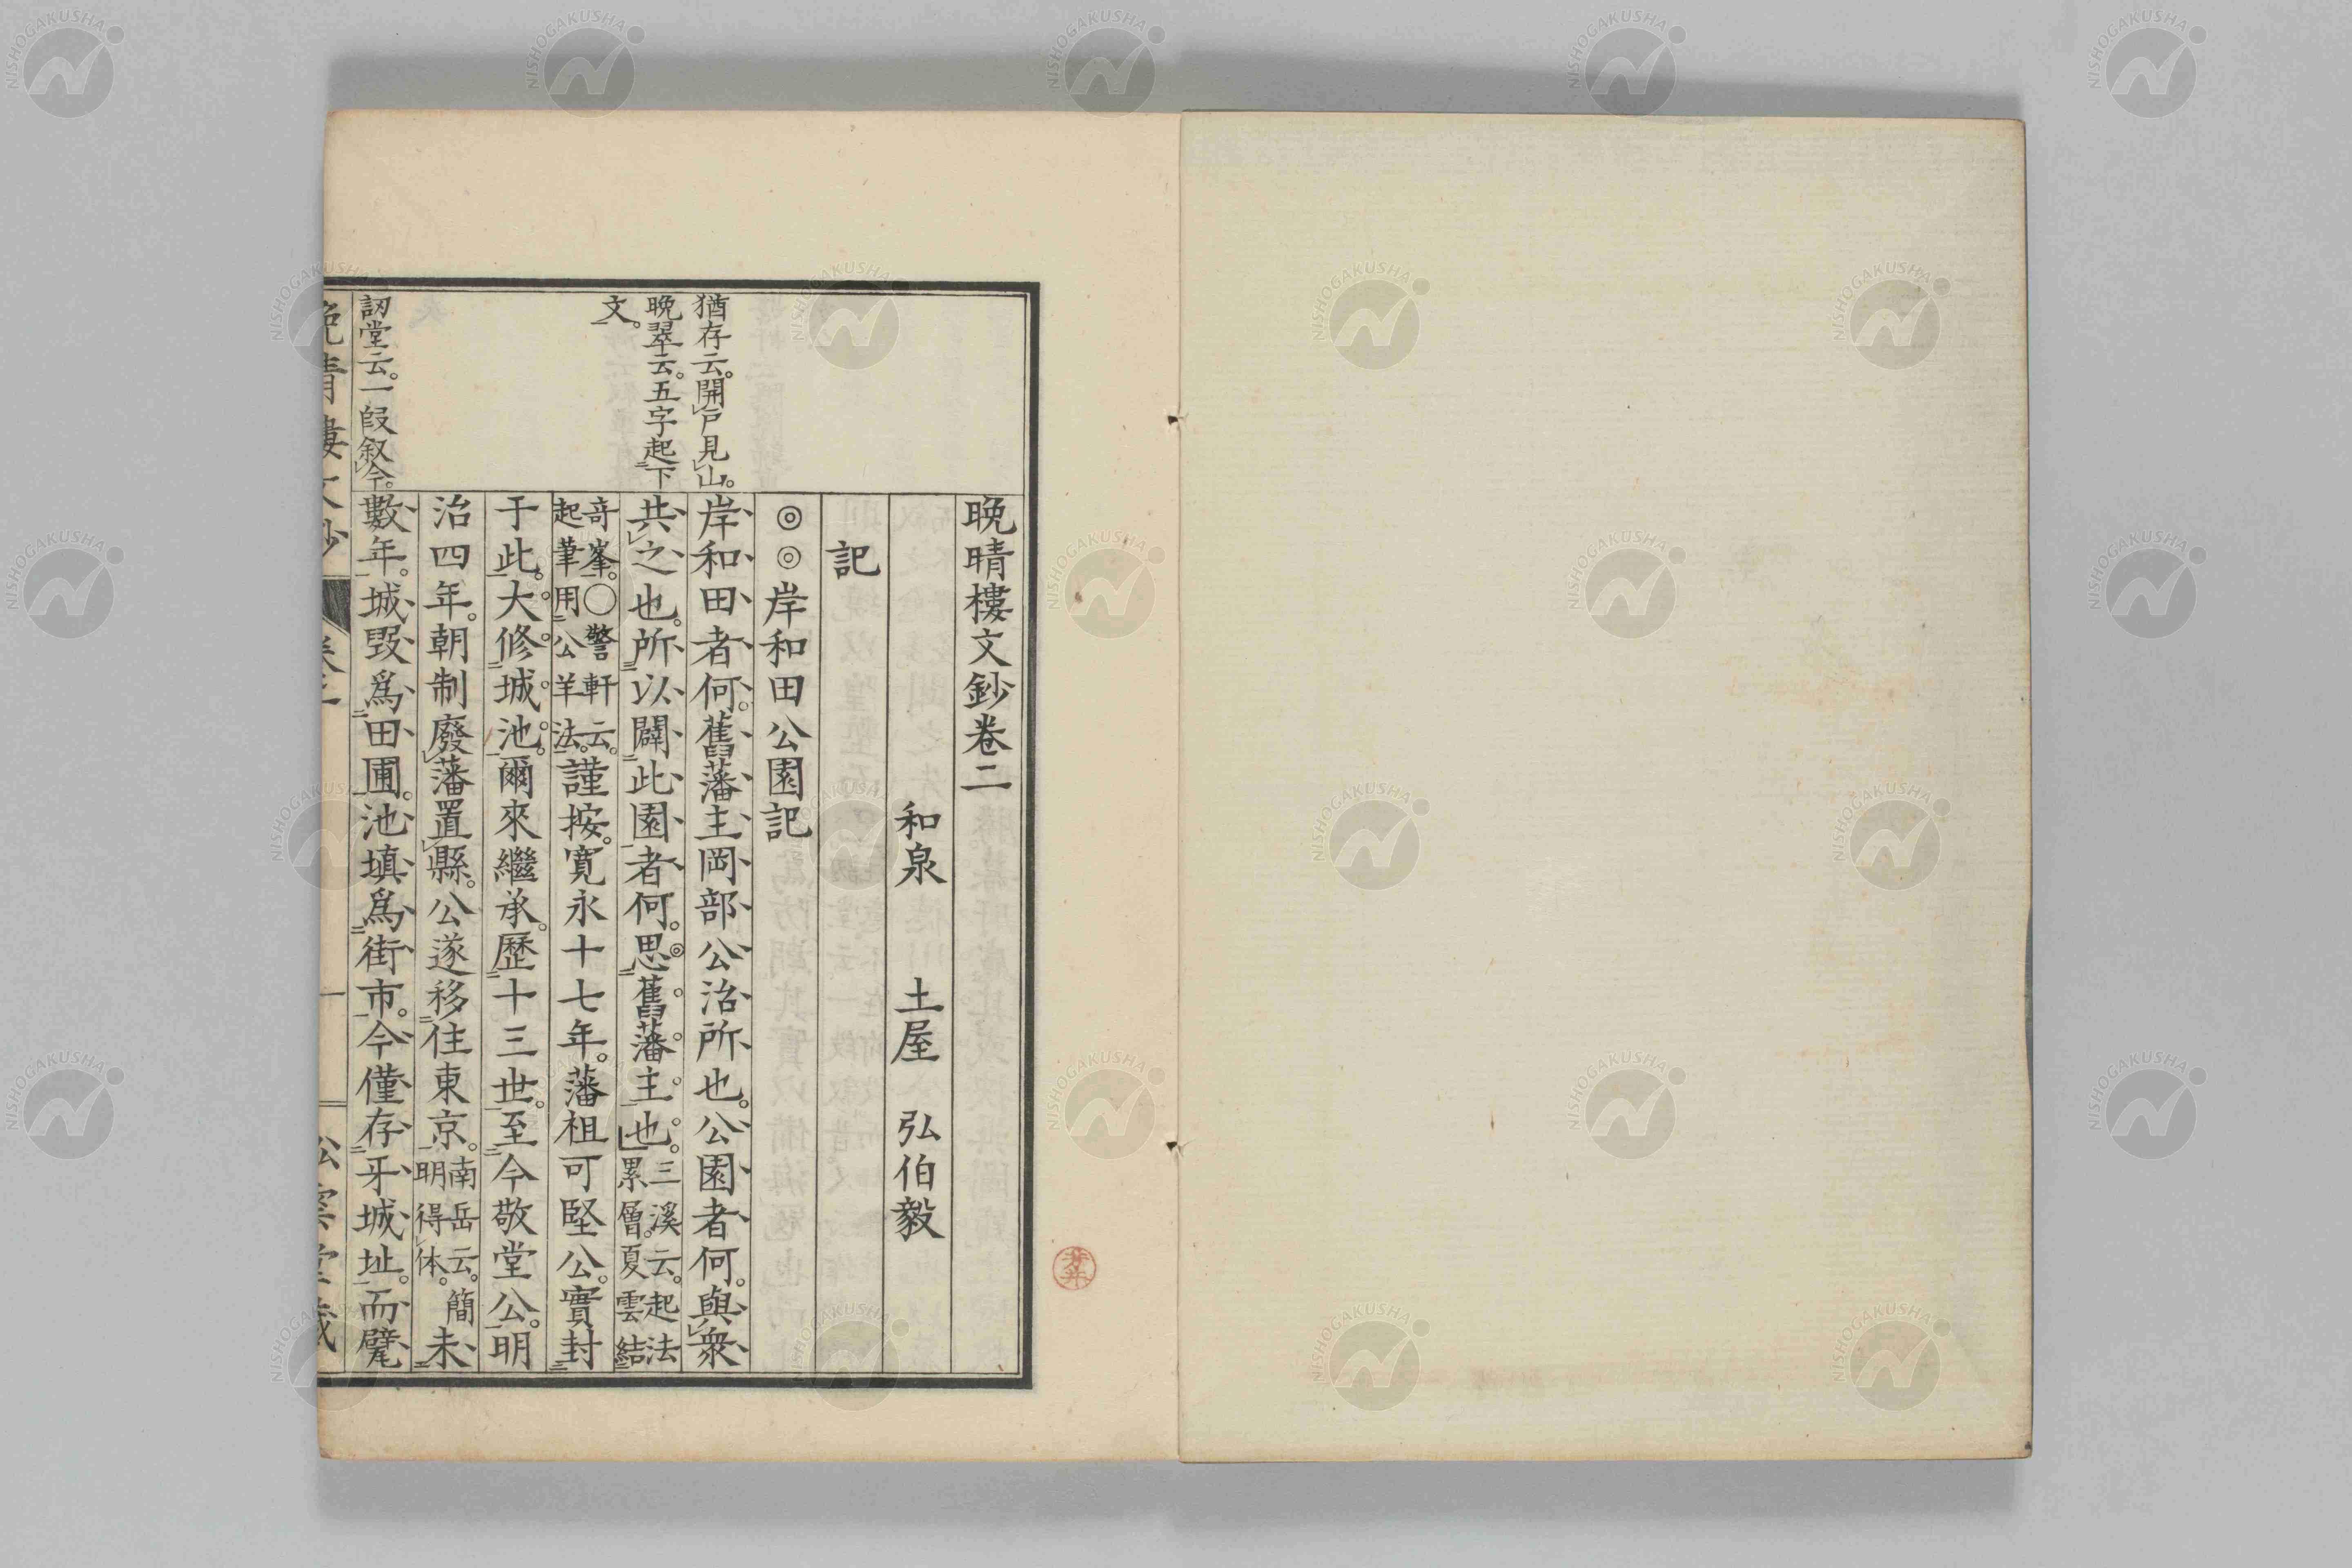 晩晴樓文鈔卷二
和泉 土屋 弘伯毅
記
◎◎岸和田公園記
猶存云。開戶見山。
岸和田者何。舊藩主岡部公治所也。公園者何。與衆
晩翠云。五字起下
文。
共之也。所以闢此園者何。思舊藩主也。三溪云。起法
累層。夏雲結
奇峯。○警軒云。
起筆用公羊法。謹按。寬永十七年。藩祖可堅公。實封
于此。大修城池。爾來繼承。歷十三世。至今敬堂公。明
治四年。朝制廢藩置縣。公遂移住東京。南岳云。簡
明得体。未
訒堂云。一段叙今。
數年。城毀爲田圃。池塡爲街市。今僅存牙城址。而甓
NISHOGAKUSHA